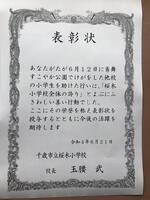 表彰状
あなたがたが６月１２日に青舞
すこやか公園でけがをした他校
の小学生を助けた行いは、「桜木
小学校全体の誇り」とよぶにふ
さわしい善い行動でした
ここにその学誉を称え表彰状を
授与するとともに今後の活躍を
期待します
令和４年６月２１日
千歳市立桜木小学校
校長 玉腰 武